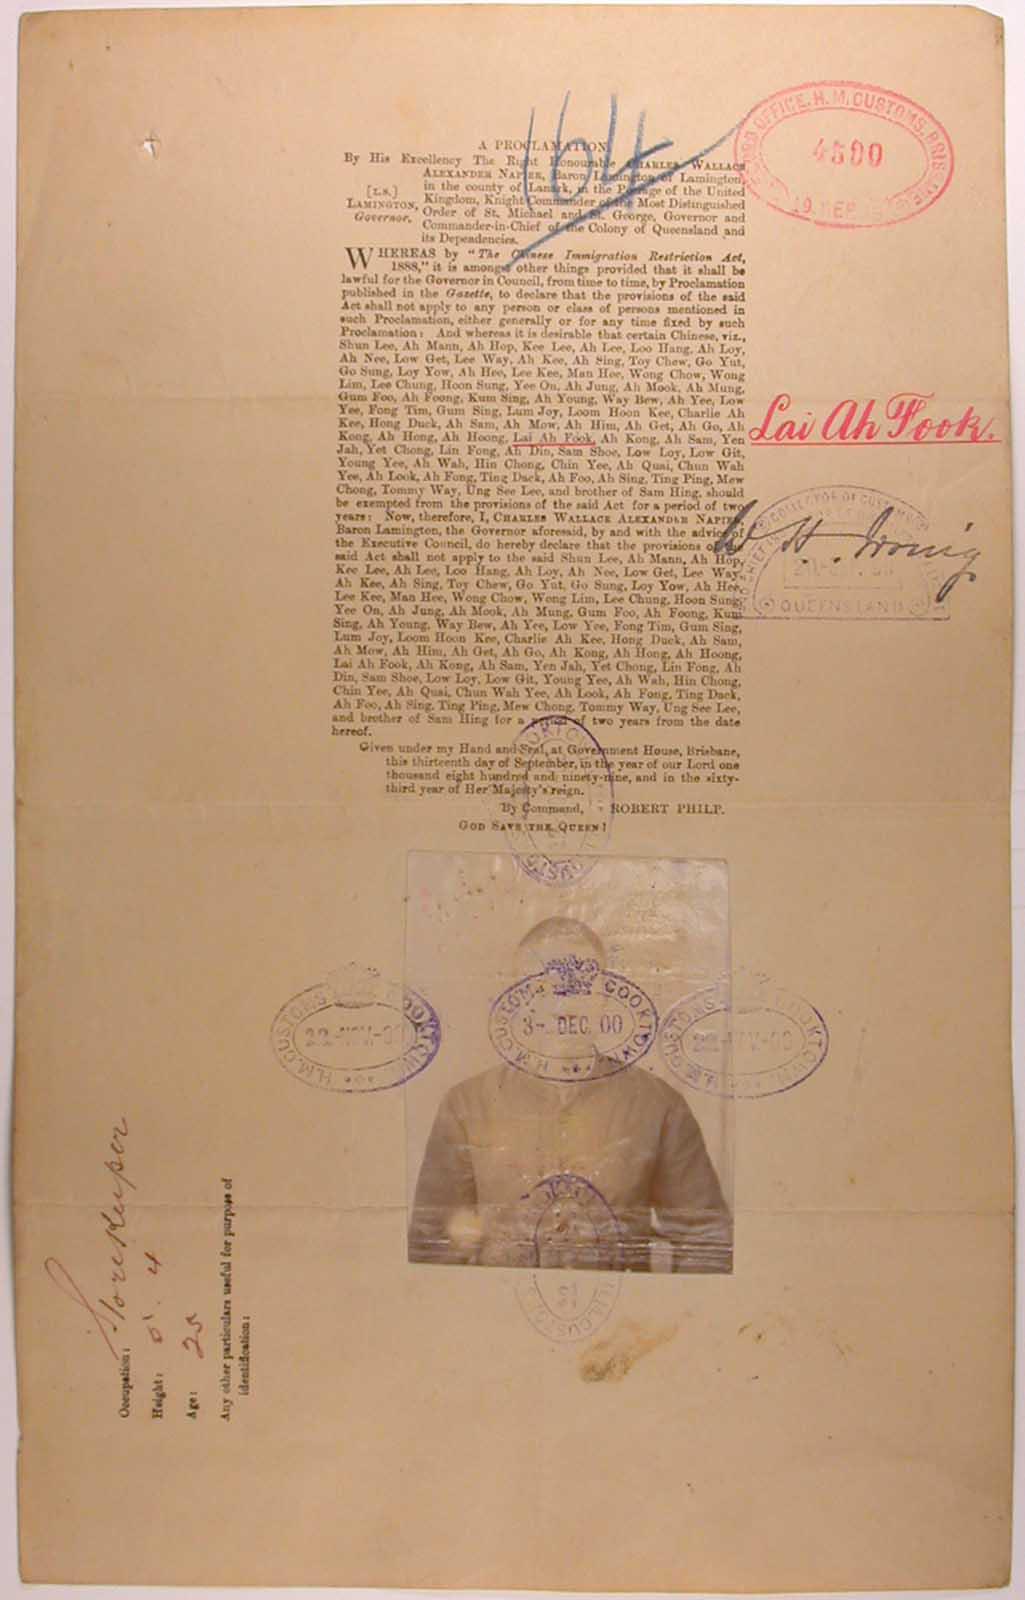 164
RECORD OFFICE. H. M. CUSTOMS, BRISBANE
4500
19 SEP
A PROCLAMATION
By His Excellency The Right Honourable CHARLES WALLACE
ALEXANDER NAPIER, Baron Lamington of Lamington,
in the county of Lanark, in the Peerage of the United
[L.S.] Kingdom, Knight Commander of the Most Distinguished
LAMINGTON, Order of St. Michael and St. George, Governor and
Governor. Commander-in-Chief of the Colony of Queensland and
its Dependencies.
WHEREAS by "The Chinese Immigration Restriction Act,
1888," it is amongst other things provided that it shall be
lawful for the Governor in Council, from time to time, by Proclamation
published in the Gazette, to declare that the provisions of the said
Act shall not apply to any person or class of persons mentioned in
such Proclamation, either generally or for any time fixed by such
Proclamation: And whereas it is desirable that certain Chinese, viz.,
Shun Lee, Ah Mann, Ah Hop, Kee Lee, Ah Lee, Loo Hang, Ah Loy,
Ah Nee, Low Get, Lee Way, Ah Kee, Ah Sing, Toy Chew, Go Yut,
Go Sung, Loy Yow, Ah Hee, Lee Kee, Man Hee, Wong Chow, Wong
Lim, Lee Chung, Hoon Sung, Yee On, Ah Jung, Ah Mook, Ah Mung,
Gum Foo, Ah Foong, Kum Sing, Ah Young, Way Bew, Ah Yee, Low
Yee, Fong Tim, Gum Sing, Lum Joy, Loom Hoon Kee, Charlie Ah
Kee, Hong Duck, Ah Sam, Ah Mow, Ah Him, Ah Get, Ah Go, Ah
Kong, Ah Hong, Ah Hoong, Lai Ah Fook, Ah Kong, Ah Sam, Yen
Lai Ah Fook.
Jah, Yet Chong, Lin Fong, Ah Din, Sam Shoe, Low Loy, Low Git,
Young Yee, Ah Wah, Hin Chong, Chin Yee, Ah Quai, Chun Wah
Yee, Ah Look, Ah Fong, Ting Dack, Ah Foo, Ah Sing, Ting Ping, Mew
Chong, Tommy Way, Ung See Lee, and brother of Sam Hing, should
be exempted from the provisions of the said Act for a period of two
years: Now, therefore, I, CHARLES WALLACE ALEXANDER NAPIER,
Baron Lamington, the Governor aforesaid, by and with the advice of
the Executive Council, do hereby declare that the provisions of the
said Act shall not apply to the said Shun Lee, Ah Mann, Ah Hop,
Kee Lee, Ah Lee, Loo Hang, Ah Loy, Ah Nee, Low Get, Lee Way,
Ah Kee, Ah Sing, Toy Chew, Go Yut, Go Sung, Loy Yow, Ah Hee,
Lee Kee, Man Hee, Wong Chow, Wong Lim, Lee Chung, Hoon Sung,
Yee On, Ah Jung, Ah Mook, Ah Mung, Gum Foo, Ah Foong, Kum
Sing, Ah Young, Way Bew, Ah Yee, Low Yee, Fong Tim, Gum Sing,
Lum Joy, Loom Hoon Kee, Charlie Ah Kee, Hong Duck, Ah Sam,
Ah Mow, Ah Him, Ah Get, Ah Go, Ah Kong, Ah Hong, Ah Hoong,
Lai Ah Fook, Ah Kong, Ah Sam, Yen Jah, Yet Chong, Lin Fong, Ah
Din, Sam Shoe, Low Loy, Low Git, Young Yee, Ah Wah, Hin Chong,
Chin Yee, Ah Quai, Chun Wah Yee, Ah Look, Ah Fong, Ting Dack,
Ah Foo, Ah Sing, Ting Ping, Mew Chong, Tommy Way, Ung See Lee,
and brother of Sam Hing for a period of two years from the date
hereof.
COLLECTOR OF CUSTOMS
W. H. Irving
QUEENSLAND
Given under my Hand and Seal, at Government House, Brisbane,
this thirteenth day of September, in the year of our Lord one
thousand eight hundred and ninety-nine, and in the sixty-
third year of Her Majesty's reign.
By Command, ROBERT PHILP.
GOD SAVE THE QUEEN!
H.M. CUSTOMS COOKTOWN
22-NOV-00
H.M. CUSTOMS COOKTOWN
3-DEC.00
H.M. CUSTOMS COOKTOWN
22-NOV-00
Occupation: Storekeeper
Height: 5' 4
Age: 25
Any other particulars useful for purpose of
identification: